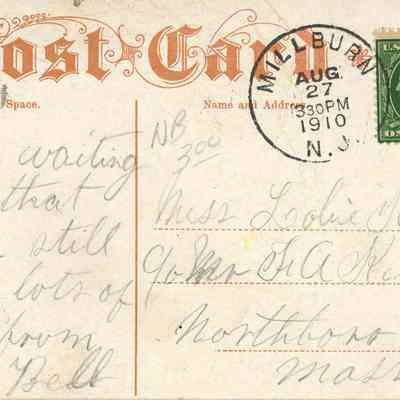 Post Card
Space.
Name and Address
MILLBURN
AUG
27
330PM
1910
N.J.
U.S.
waiting
that
still
lots of
from
Bell
NB
3.00
Miss
F A
Northboro
Mass